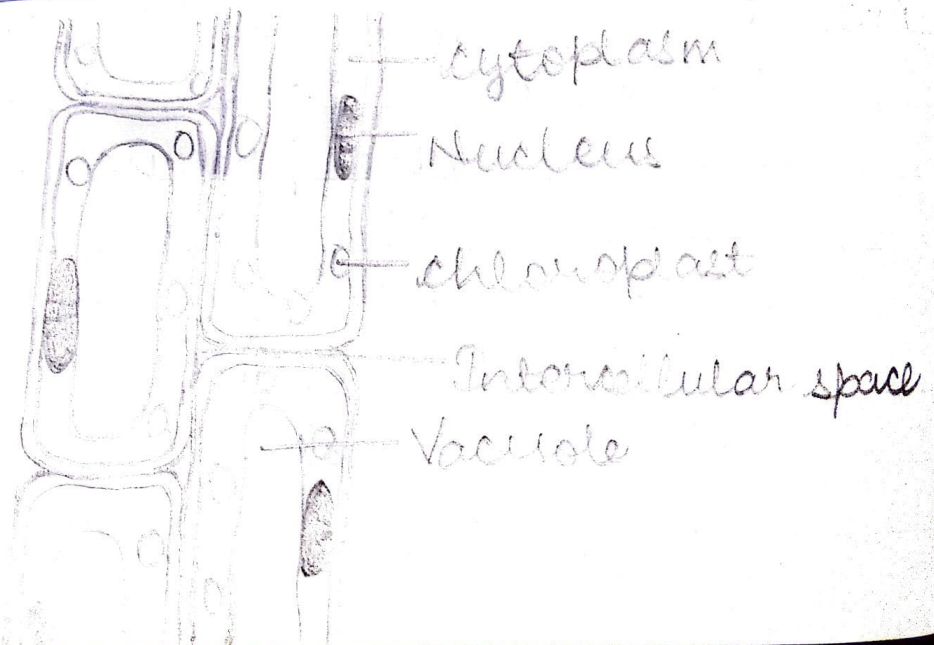 cytoplasm
Nucleus
chloroplast
Intercellular space
Vacuole